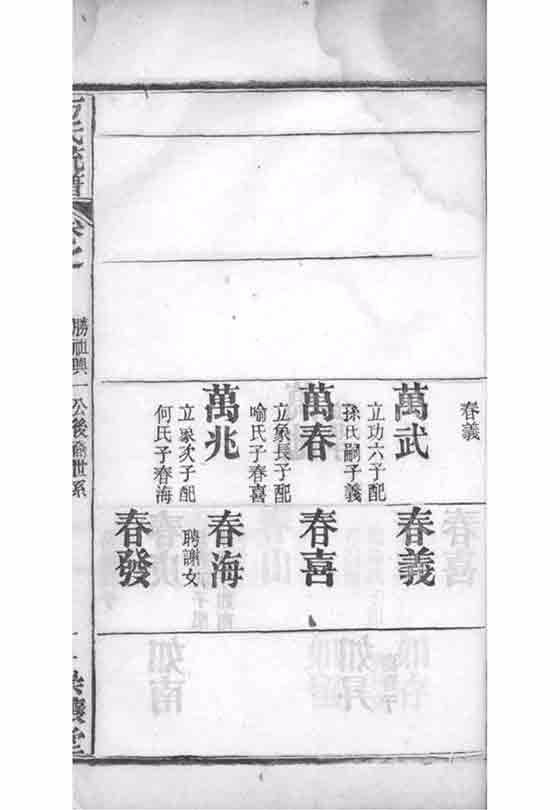 春義
萬武
立功六子配
孫氏嗣子義
萬春
立象長子配
喻氏子春喜
萬兆
立象次子配
何氏子春海
春義
春喜
春海
聘謝女
春發
氏統譜
勝祖興一公後裔世系